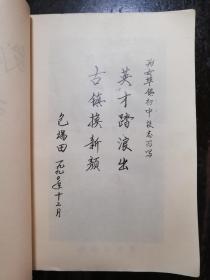 为奉华锡初中校志而写
英才踏浪出
古镇换新颜
包瑞田
一九九〇年十二月